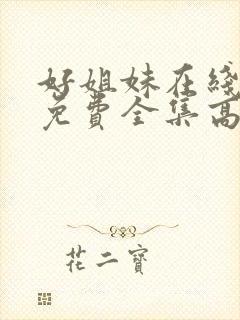 好姐妹在线
免费全集高
花二寶